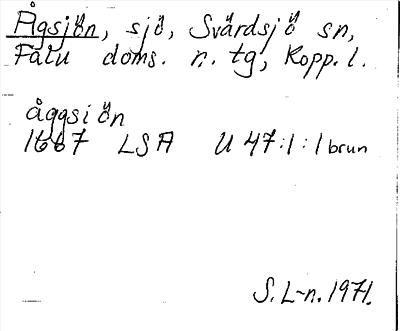 Ågsjön, sjö, Svärdsjö sn,
Falu doms. n. tg, Kopp. l.
åggsiön
1667 LSA U 47:1:1 brun
S. L-n. 1971.